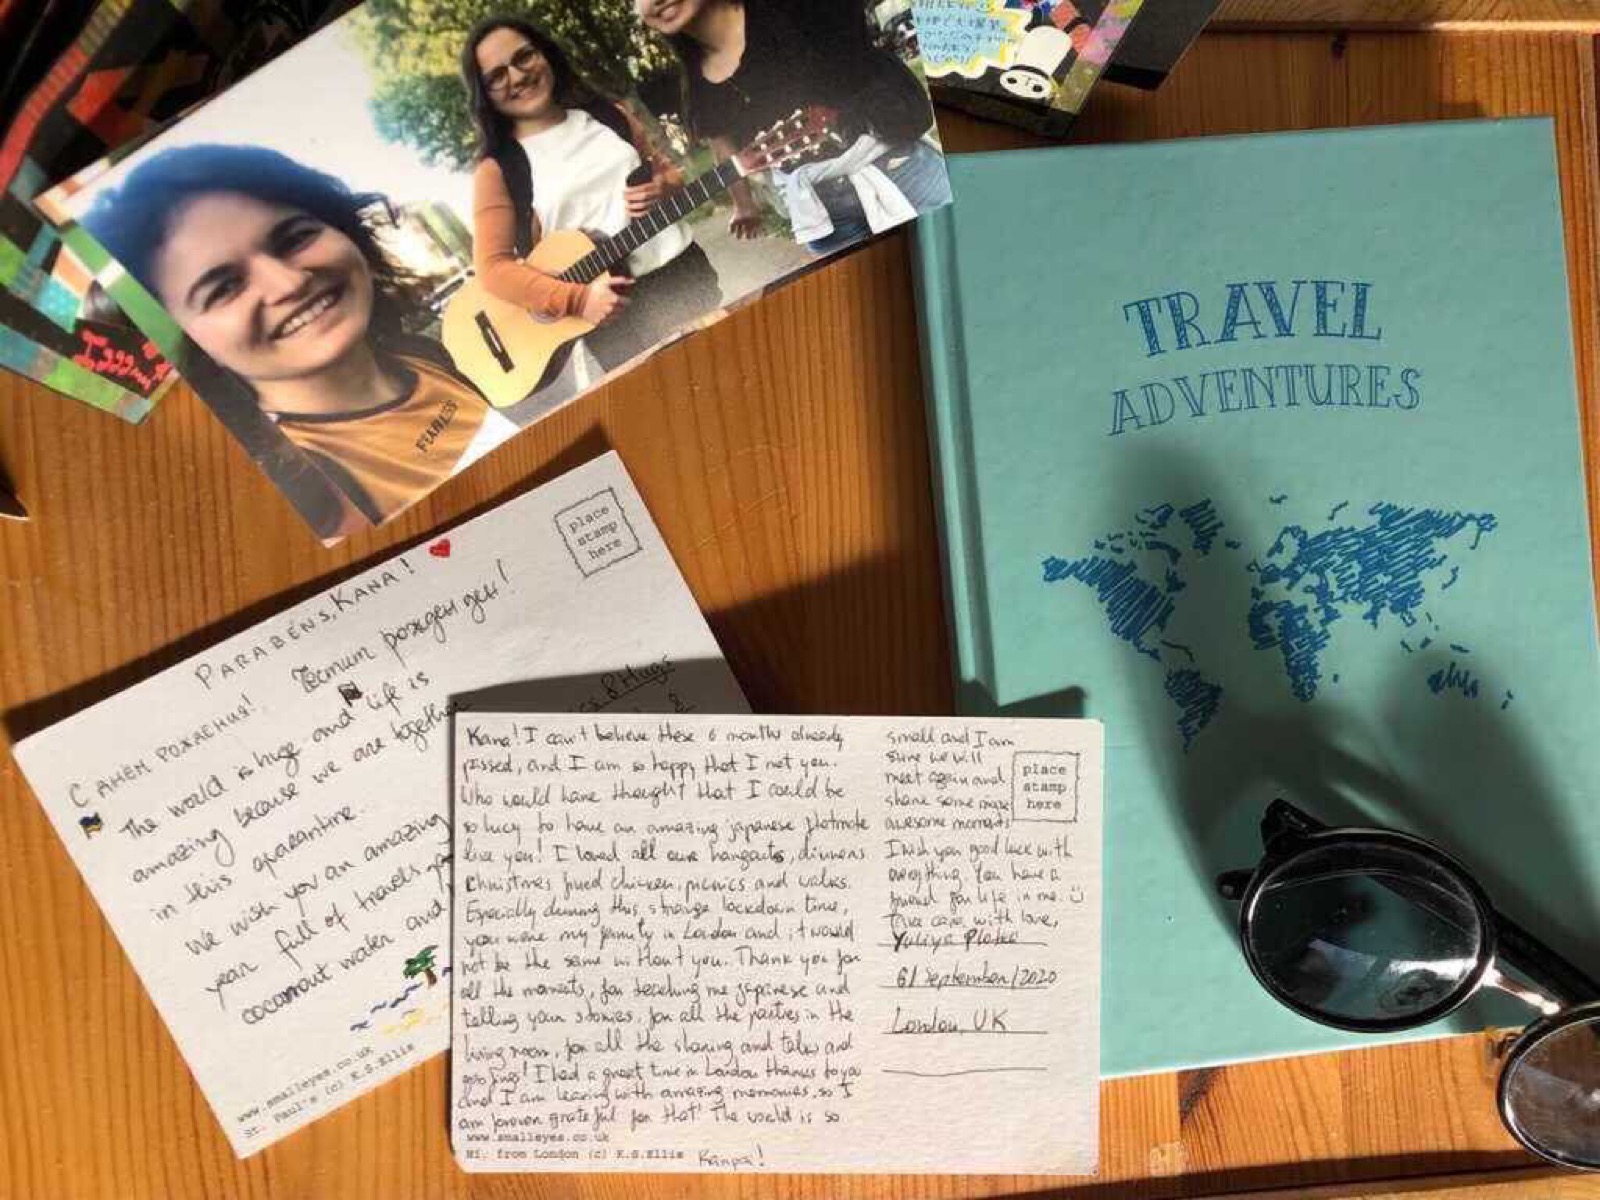 FEARLESS
TRAVEL
ADVENTURES
place
stamp
here
PARABÉNS, KANA!
Честит рожден ден!
The world is huge and life is
amazing because we are together
in this quarantine.
We wish you an amazing
year full of travels
coconut water and
& Hugs
www.smalleyes.co.uk
St. Paul's (c) K.S.Ellis
Kana! I can't believe these 6 months already
passed, and I am so happy that I met you.
Who would have thought that I could be
so lucy to have an amazing japanese flatmate
like you! I loved all our hangouts, dinners
Christmas fried chicken, picnics and walks.
Especially during this strange lockdown time,
you were my family in London and it would
not be the same without you. Thank you for
all the moments, for teaching me japanese and
telling your stories, for all the parties in the
living room, for all the sharing and talks and
I had a great time in London thanks to you
and I am leaving with amazing memories, so I
am forever grateful for that! The world is so
www.smalleyes.co.uk
Hi. from London (c) K.S.Ellis
Kanpai!
small and I am
sure we will
meet again and
share some more
awesome moments
I wish you good luck with
everything. You have a
friend for life in me.
Take care, with love,
Yuliya
6/September/2020
London, UK
place
stamp
here